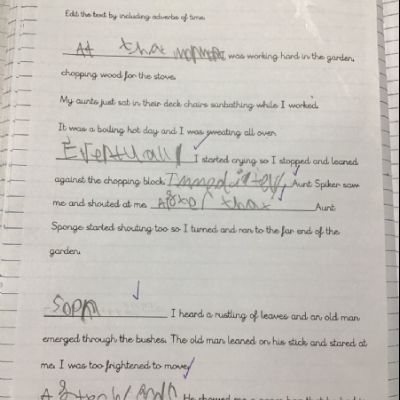 Edit the text by including adverbs of time.
At that moment I was working hard in the garden,
chopping wood for the stove.
My aunts just sat in their deck chairs sunbathing while I worked.
It was a boiling hot day and I was sweating all over.
Eventually I started crying so I stopped and leaned
against the chopping block. Immeditley, Aunt Spiker saw
me and shouted at me. After that Aunt
Sponge started shouting too so I turned and ran to the far end of the
garden.
Soon I heard a rustling of leaves and an old man
emerged through the bushes. The old man leaned on his stick and stared at
me. I was too frightened to move.
He showed me a paper bag that